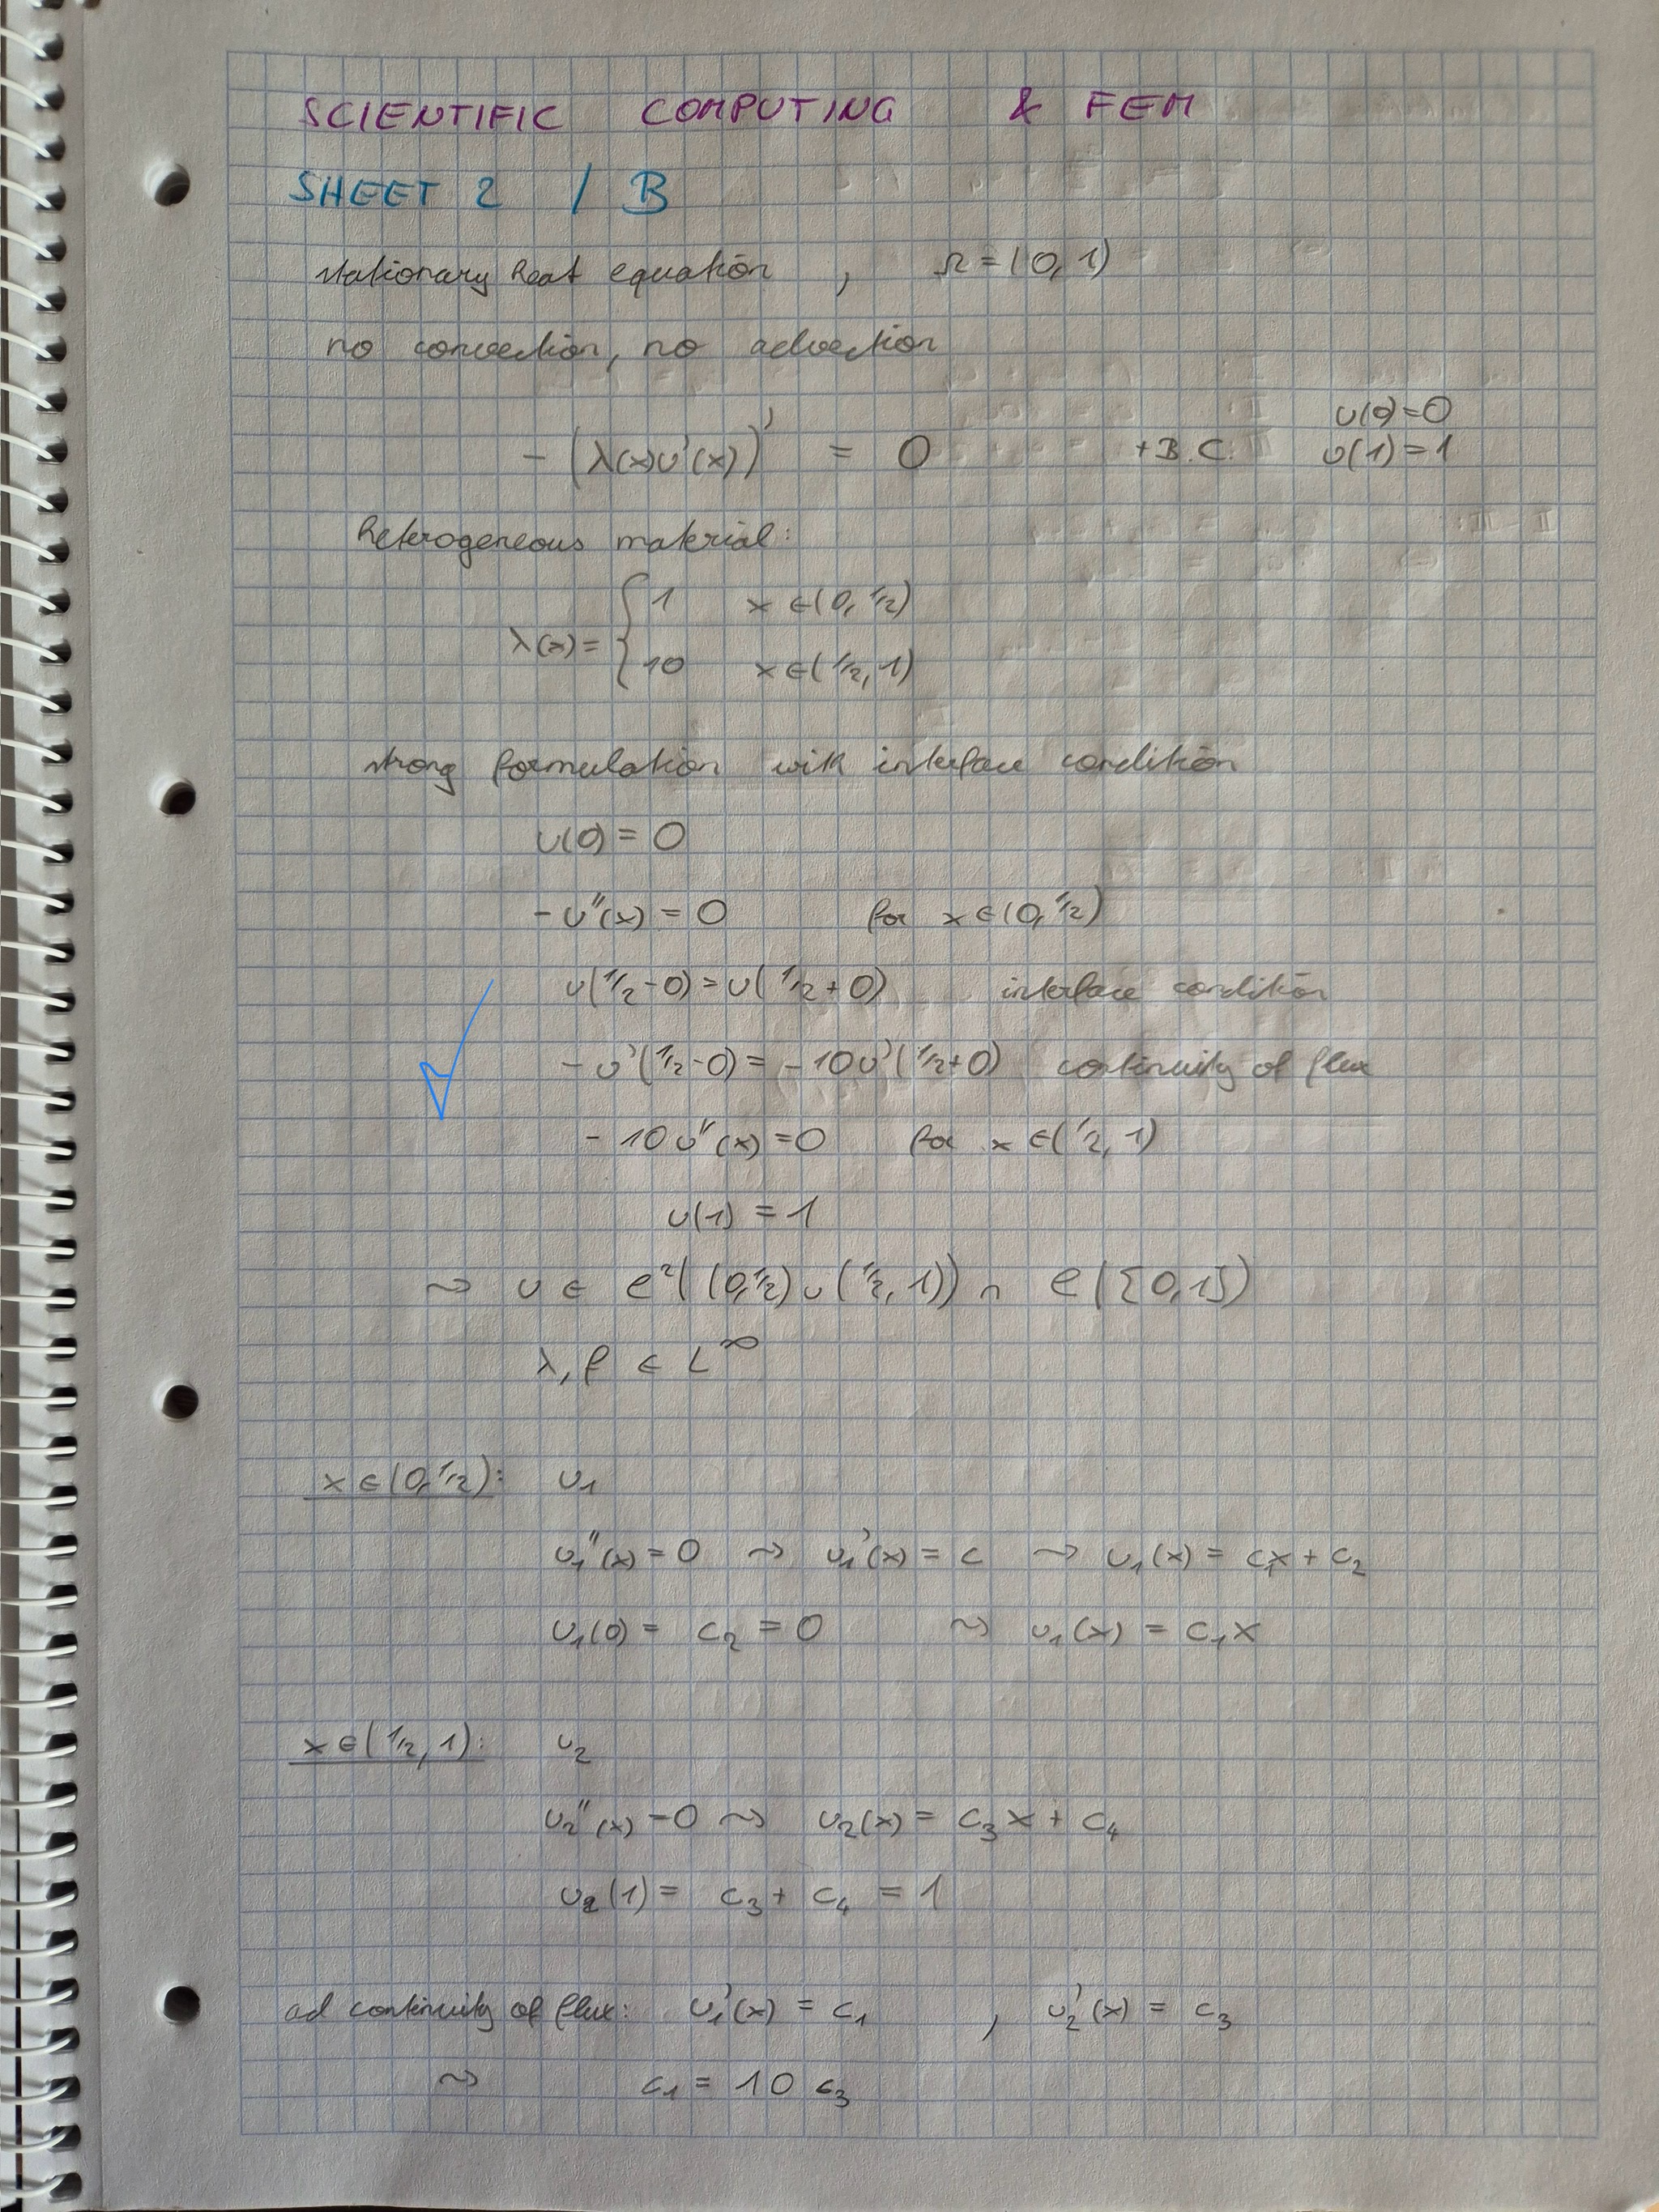 SCIENTIFIC COMPUTING & FEM
SHEET 2 / B
stationary heat equation , Ω = (0,1)
no convection, no advection
u(0)=0
- (λ(x)u'(x))' = 0 + B.C. u(1)=1
heterogeneous material:
λ(x) = { 1 x ∈ (0, 1/2)
10 x ∈ (1/2, 1)
strong formulation with interface condition
u(0) = 0
- u''(x) = 0 for x ∈ (0, 1/2)
u(1/2 - 0) = u(1/2 + 0) interface condition
- u'(1/2 - 0) = - 10u'(1/2 + 0) continuity of flux
- 10u''(x) = 0 for x ∈ (1/2, 1)
u(1) = 1
⇝ u ∈ C²((0,1/2) ∪ (1/2, 1)) ∩ C([0,1])
λ, f ∈ L^∞
x ∈ (0, 1/2): u₁
u₁''(x) = 0 ⇝ u₁'(x) = c ⇝ u₁(x) = c₁x + c₂
u₁(0) = c₂ = 0 ⇝ u₁(x) = c₁x
x ∈ (1/2, 1): u₂
u₂''(x) = 0 ⇝ u₂(x) = c₃x + c₄
u₂(1) = c₃ + c₄ = 1
ad continuity of flux: u₁'(x) = c₁ , u₂'(x) = c₃
⇝ c₁ = 10 c₃